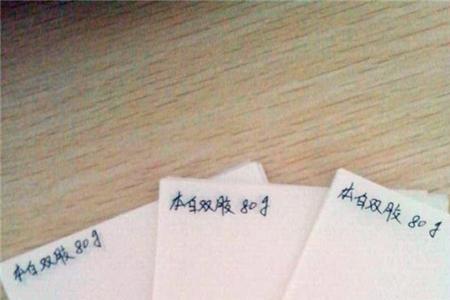 本白双胶 80g
本白双胶 80g
本白双胶 80g